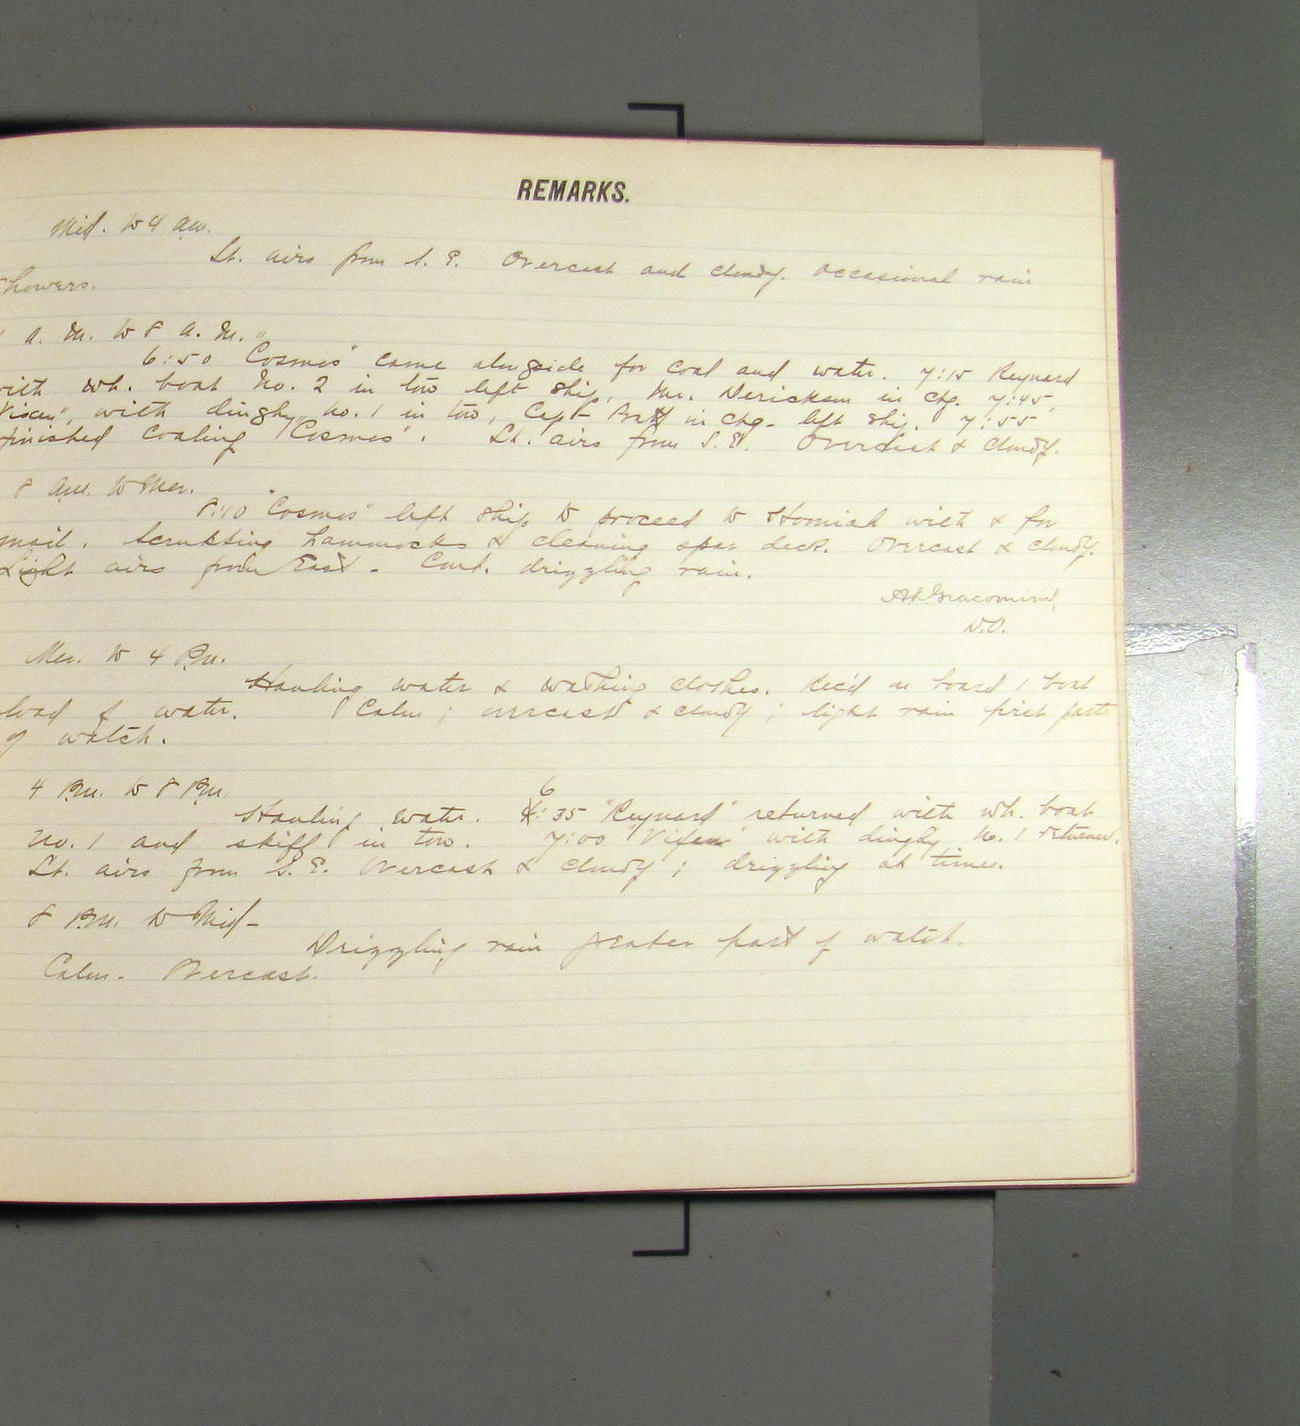 REMARKS.
Mid. to 4 am.
Lt. airs from S. E. Overcast and cloudy. Occasional rain
showers.
a. m. to 8 a. m.
6:50 "Cosmos" came alongside for coal and water. 7:15 Reynard
with wh. boat No. 2 in tow left ship, Mr. Dericksen in chg. 7:45,
with dinghy No. 1 in tow, Capt in chg. left ship. 7:55
finished coaling "Cosmos". Lt. airs from S.E. Overcast & cloudy.
8 am. to Mer.
8:10 "Cosmos" left ship to proceed to with & for
mail. Scrubbing hammocks & cleaning spar deck. Overcast & cloudy.
Light airs from East. Cont. drizzling rain.
Giacomini,
N.O.
Mer. to 4 P.m.
Hauling water & washing clothes. Rec'd on board 1 boat
load of water. Calm; overcast & cloudy; light rain first part
of watch.
4 P.m. to 8 P.m.
Hauling water. 6:35 "Reynard" returned with wh. boat
No. 1 and skiff in tow. 7:00 with dinghy No. 1 returned.
Lt. airs from S. E. Overcast & cloudy; drizzling at times.
8 P.m. to Mid-
Drizzling rain greater part of watch.
Calm. Overcast.